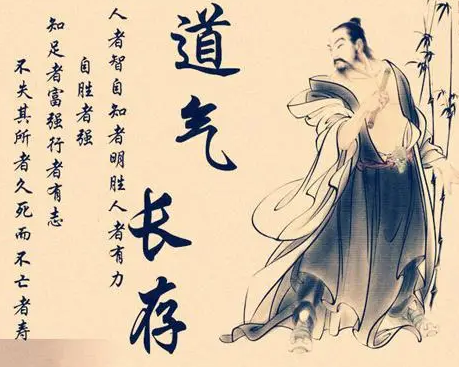 道气长存
人者智自知者明胜人者有力
自胜者强
知足者富强行者有志
不失其所者久死而不亡者寿